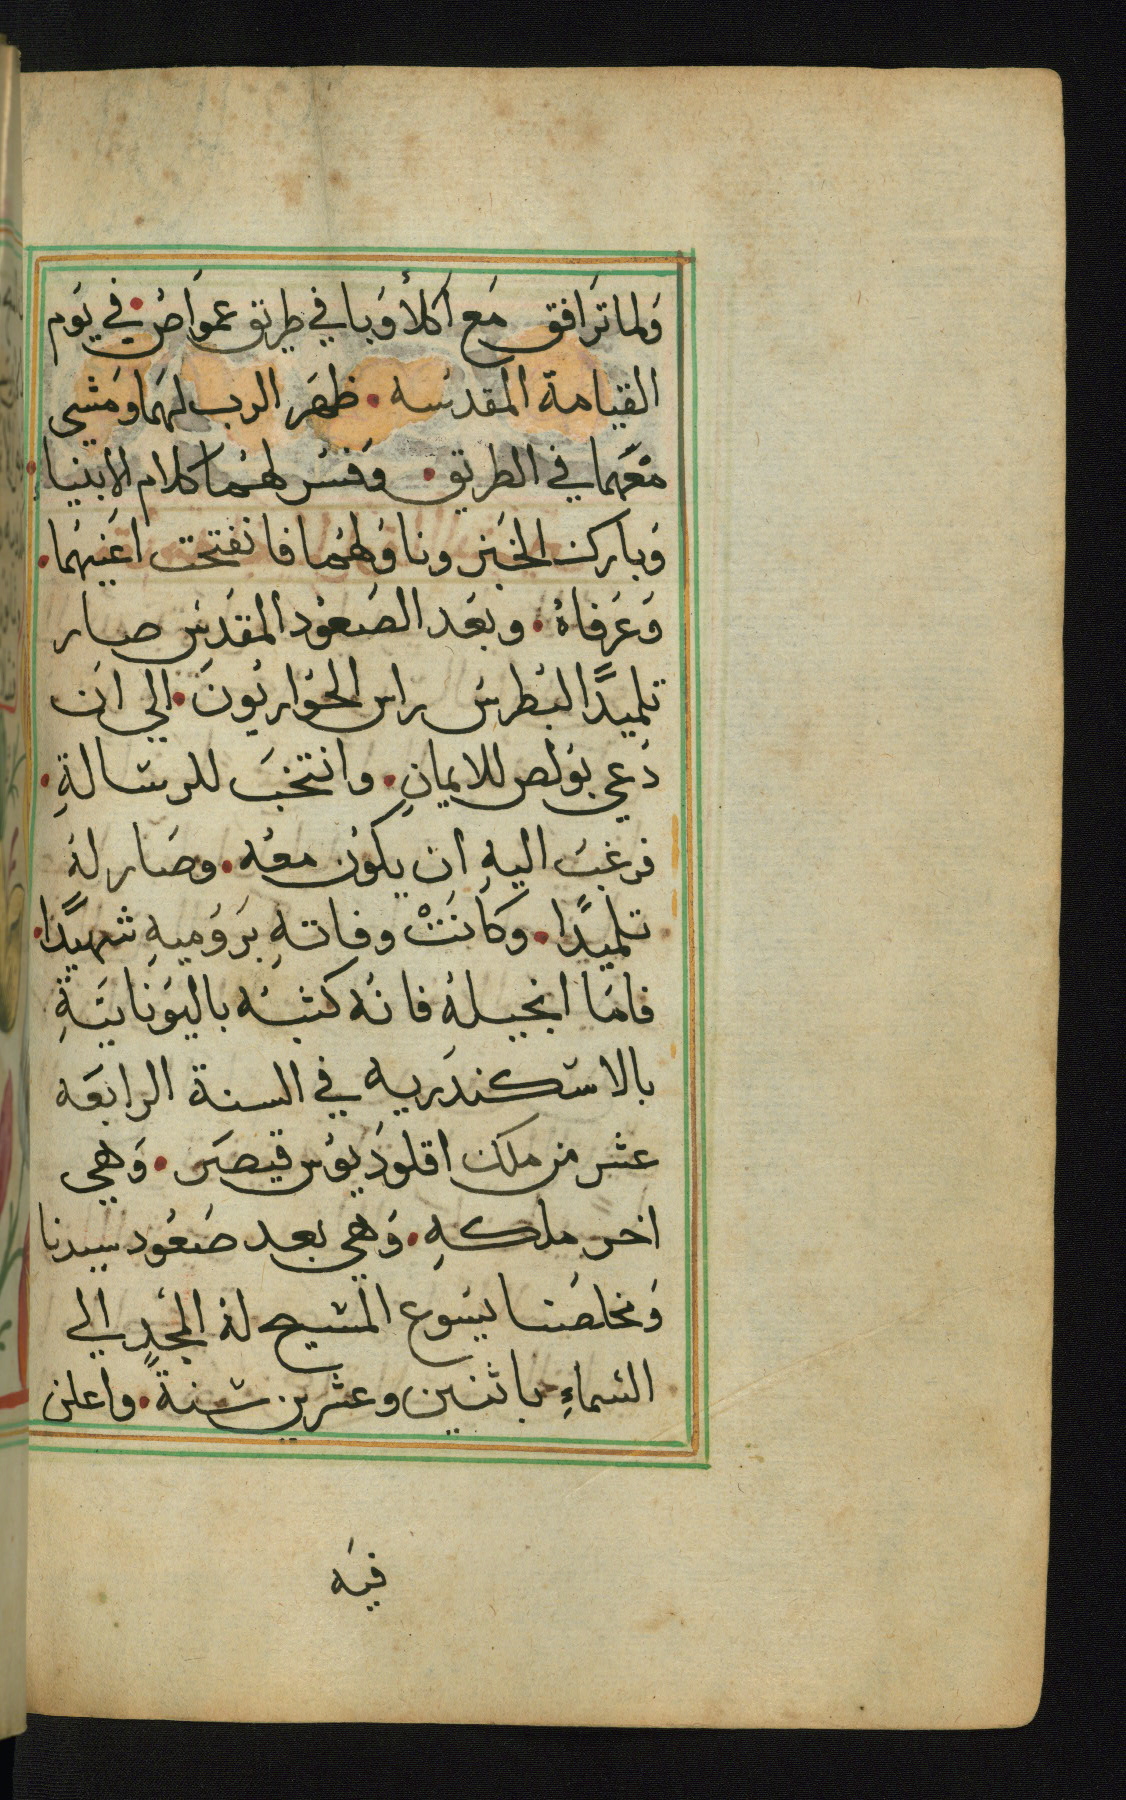 وَلما تَرَافق مَع اكلأُوَبا في طريق عموَاصُ في يَوم
القيامة المقدسه • ظهَر الرب لهمَا ومَشي
معَهما في الطريق • وَفسُر لهُما كلام الابنياءِ •
وَبارك الخَبز وناوَلهُما فانفتحت اعَينهُما •
وَعَرفاهُ • وبعَد الصَعوُد المقدَسَ صار
تلميدًا لبُطرسُ راس الحوَاريوُنَ • الي انَ
دُعي بوَلص للايمانِ • وانتخبَ للرسالةِ •
فرغبَ اليهِ ان يكوُن معهُ • وصَار لهُ
تلميدًا • وكانَتْ وفاتهِ بَروَميهِ شهيدًا •
فامَا انجيلهُ فانهُ كتبهُ باليوَنانيَةِ
بالاسكندَريه في السنة الرابعَه
عشر من ملك اقلودَيوُس قيصَر • وَهي
اخر ملكهِ • وَهي بعد صَعوُد سيدنا
وَمخلصَنا يسَوع المسَيح لهُ المجَدِ الي
السَماءِ باثنين وعشرين سنةً • واعلن
فيهَ